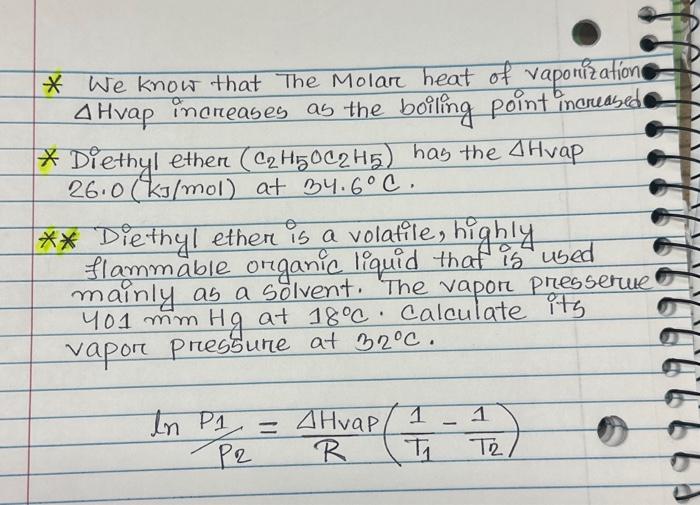 * We know that The Molar heat of vaporization
ΔHvap increases as the boiling point increased
* Diethyl ether (C2H5OC2H5) has the ΔHvap
26.0 (kJ/mol) at 34.6°C.
** Diethyl ether is a volatile, highly
flammable organic liquid that is used
mainly as a solvent. The vapor presserue
401 mm Hg at 18°C. Calculate its
vapor pressure at 32°C.
ln P1/P2 = ΔHvap/R (1/T1 - 1/T2)